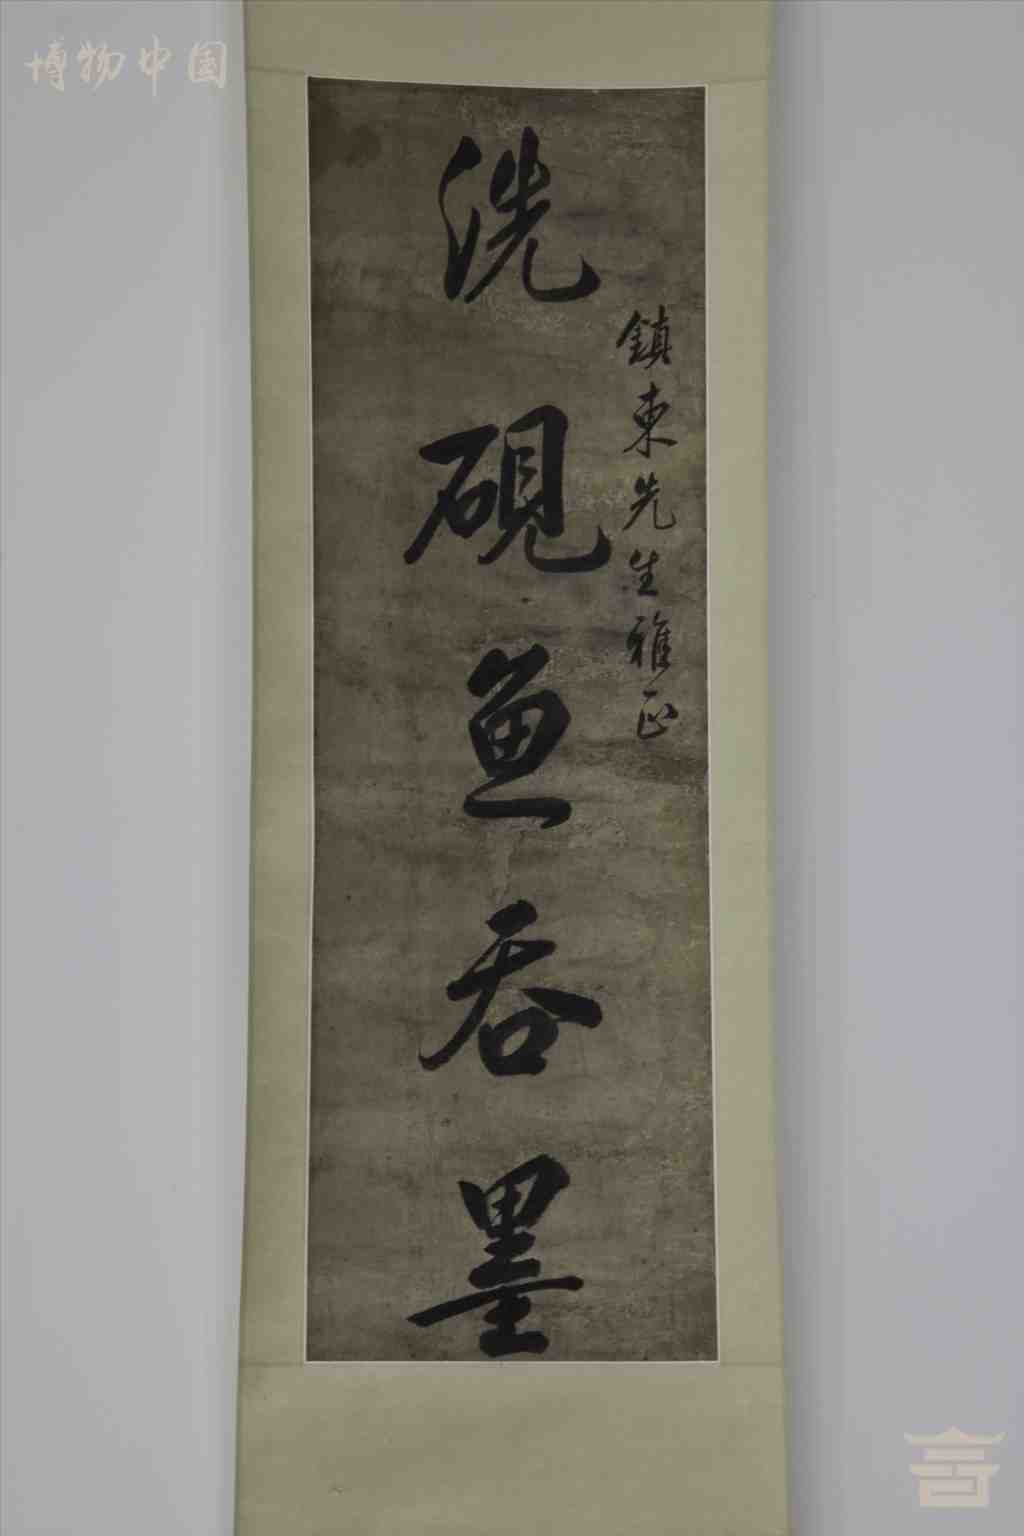 博物中国
鎮東先生雅正
洗硯魚吞墨